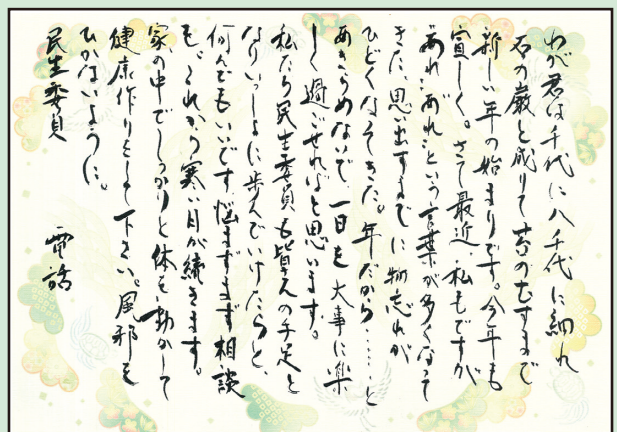 わが君は千代に八千代に細れ
石の巌と成りて苔のむすまで
新しい年の始まりです。今年も
宜しく。さて最近、私もですが
“あれ”“あれ”という言葉が多くなって
きた、思い出すまでに物忘れが
ひどくなってきた。年だから……と
あきらめないで、一日を大事に楽
しく過ごせればと思います。
私たち民生委員も皆んの手足と
なりいっしょに歩んでいけたらと、
何んでもいいです悩まずまず相談
を、これから寒い日が続きます。
家の中でしっかりと体を動かして
健康作りをして下さい。風邪を
ひかないように。
民生委員
電話